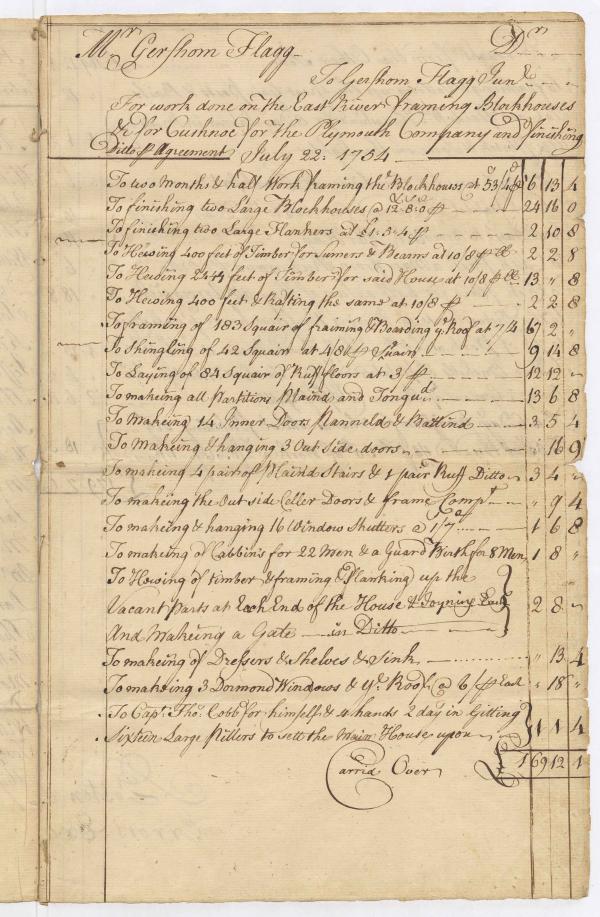 Mr Gershom Flagg Dr
To Gershom Flagg Junr
For work done on the East River framing Blockhouses
& for Cushnoc for the Plymouth Company and finishing
Ditto p Agreement July 22: 1754
To two Months & half Work framing the Blockhouss at 53/4 p 6 13 4
To finishing two Large Blockhouses @ 12.8.0 p 24 16 0
To finishing two Large Flankers at £1.5.4 p 2 10 8
To Hewing 400 feet of Timber for Sumers & Beams at 10/8 p 2 2 8
To Hewing 2444 feet of Timber for said House at 10/8 p 13 " 8
To Hewing 400 feet & Rafting the same at 10/8 p 2 2 8
To framing of 183 Squair of fraining & Boarding ye Roof at 7/4 67 2 "
To Shingling of 42 Squair at 4/8 p Squair 9 14 8
To Laying of 84 Squair of Ruff floors at 3 p 12 12 "
To makeing all Partitions Plaind and Tongud 13 6 8
To Makeing 14 Inner Doors Planneld & Battind 3 5 4
To Makeing & hanging 3 Out Side doors " 16 9
To makeing 4 pair of Plaind Stairs & 1 pair Ruff Ditto 3 4 "
To makeing the Out side Celler Doors & frame Compt " 9 4
To makeing & hanging 16 Window Shutters @ 1/7 1 6 8
To makeing of Cabbins for 22 Men & a Guard Birth for 8 Men 1 8 "
To Hewing of timber & framing & Planking up the
Vacant Parts at Each End of the House & Joyning Each 2 8 "
And Makeing a Gate in Ditto
To makeing of Dressers & Shelves & Sink " 13 4
To makeing 3 Dormond Windows & ye Roof @ 6/ p Each " 18 "
To Capt. Tho. Cobb for himself & 4 hands 2 day in Gitting
Sixteen Large Pillers to sett the Main House upon 1 1 4
Carrid Over 169 12 1